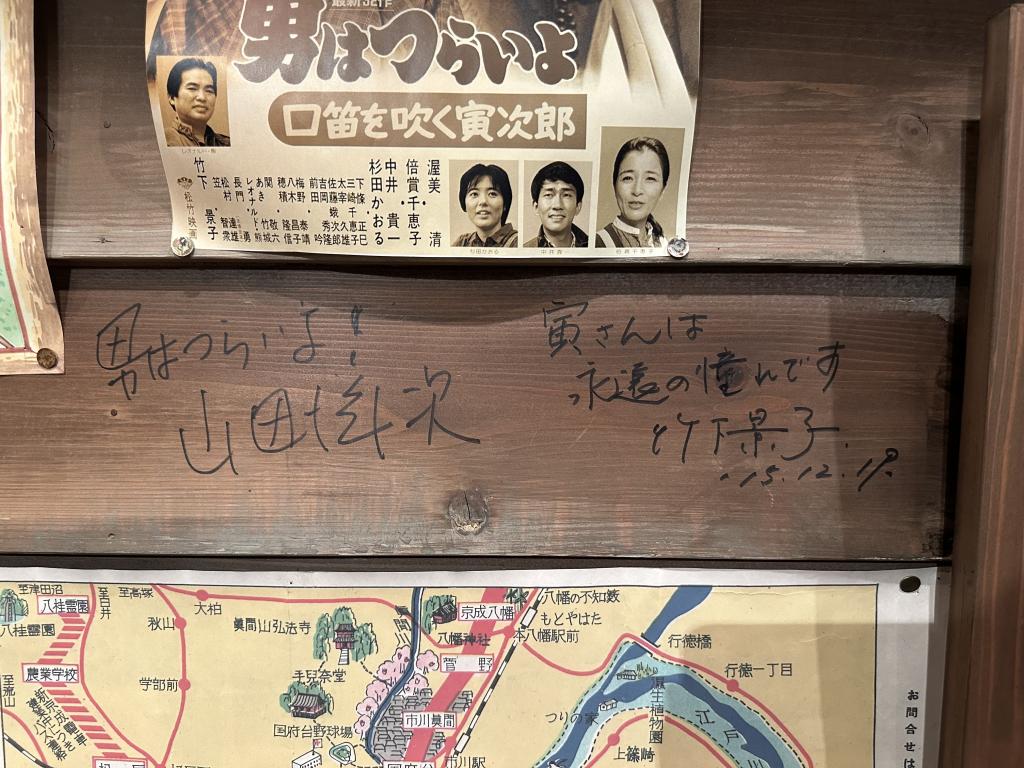 最新32作
男はつらいよ
口笛を吹く寅次郎
渥美 清
倍賞千恵子
中井貴一
杉田かおる
下條正巳
三崎千恵子
太宰久雄
佐藤蛾次郎
吉岡秀隆
前田吟
梅野泰靖
八木昌子
穂積隆信
関敬六
あき竹城
レオナルド・熊
長門勇
松村達雄
笠智衆
竹下景子
松竹映画
レオナルド・熊
杉田かおる
中井貴一
倍賞千恵子
男はつらいよ!
山田洋次
寅さんは
永遠の憧れです
竹下景子.
.15.12.19.
至津田沼
八柱霊園
八柱霊園
至臼井
至高塚
大柏
秋山
農業学校
学部前
至流山
眞間山弘法寺
手児奈堂
国府台野球場
眞間川
京成八幡
八幡の不知薮
もとやはた
本八幡駅前
八幡神社
菅野
市川眞間
市川駅
行徳橋
行徳一丁目
つりの家
江戸川
上篠崎
お問合せは